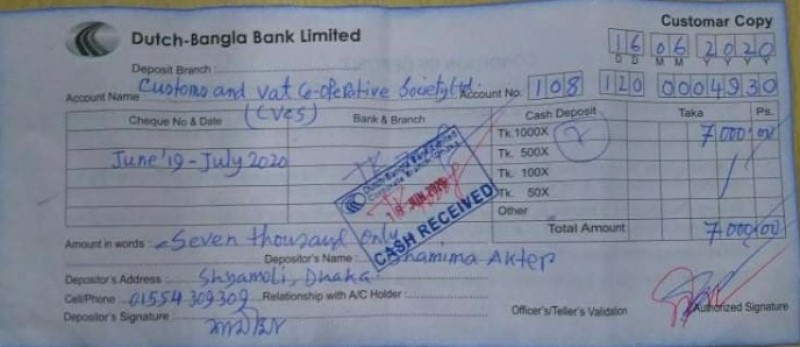 Customar Copy
Dutch-Bangla Bank Limited
16 06 2020
D D M M Y Y Y Y
Deposit Branch :
Account Name Customs and Vat Co-operative Society Ltd. Account No. 108 120 0004930
(CVCS)
Cheque No & Date Bank & Branch Cash Deposit Taka Ps.
Tk.1000X 7 7000 00
Tk. 500X
June'19 - July 2020
Tk. 100X
Tk. 50X
Other
Dutch-Bangla Bank Limited
CASH RECEIVED
Total Amount 7000 00
Amount in words : Seven thousand only
Depositor's Name : Shamima Akter
Depositor's Address : Shyamoli, Dhaka
Cell/Phone 01554 309309 Relationship with A/C Holder :
Depositor's Signature :
Officer's/Teller's Validation Authorized Signature